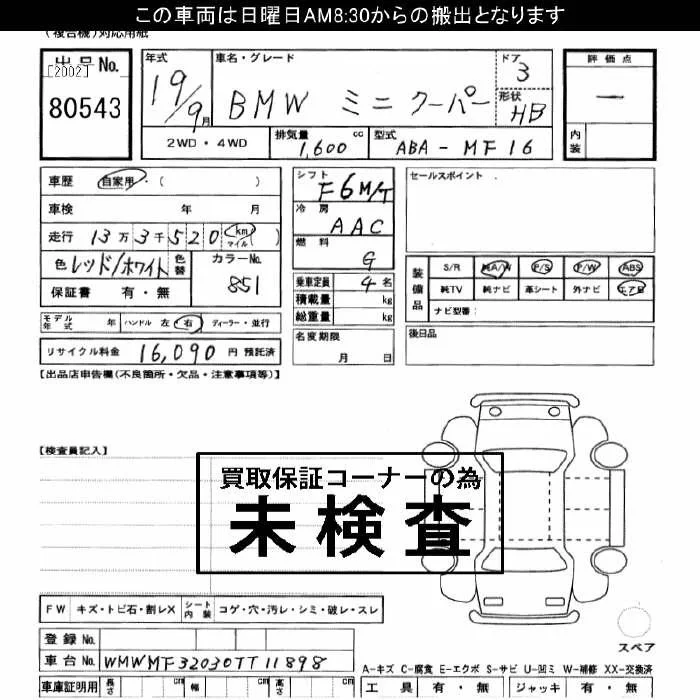 この車両は日曜日AM8:30からの搬出となります
(複合機)対応用紙
出品No.
[2002]
80543
年式
19/9月
車名・グレード
BMW ミニクーパー
ドア
3
形状
HB
2WD・4WD
排気量 1,600 cc
型式 ABA-MF16
評価点
―
内装
車歴 自家用・( )
車検 年 月
走行 13万3千520 (km マイル)
色 レッド/ホワイト 色替
カラーNo. 851
保証書 有・無
モデル年式 年 ハンドル 左 右 ディーラー・並行
リサイクル料金 16,090 円 預託済
シフト F6M/T
冷房 AAC
燃料 G
乗車定員 4 名
積載量 kg
総重量 kg
名変期限
月 日
セールスポイント
装備品
S/R PA/W P/S P/W ABS
純TV 純ナビ 革シート 外ナビ エアB
ナビ型番:
後日品
【出品店申告欄(不良箇所・欠品・注意事項等)】
【検査員記入】
買取保証コーナーの為
未検査
FW キズ・トビ石・割レX シート内装 コゲ・穴・汚レ・シミ・破レ・スレ
登録No.
車台No. WMWMF32030TT11898
車庫証明用 長さ cm 幅 cm 高さ cm
スペア
A-キズ C-腐食 E-エクボ S-サビ U-凹ミ W-補修 XX-交換済
工具 有・無 ジャッキ 有・無